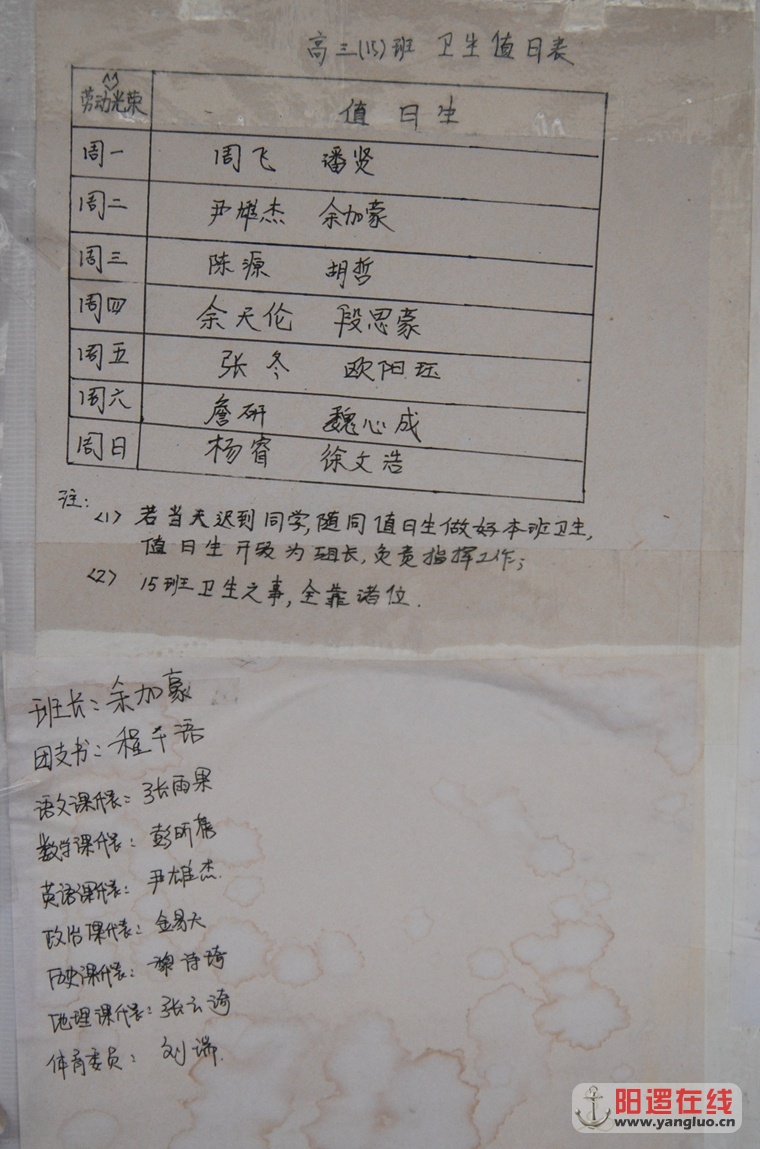 高三(15)班 卫生值日表
劳动光荣 值日生
周一 周飞 潘贤
周二 尹雄杰 余加豪
周三 陈源 胡哲
周四 余天伦 段思豪
周五 张冬 欧阳珏
周六 詹研 魏心成
周日 杨睿 徐文浩
注:
<1> 若当天迟到同学,随同值日生做好本班卫生,
值日生升级为组长,负责指挥工作;
<2> 15班卫生之事,全靠诸位.
班长:余加豪
团支书:程千语
语文课代表:张雨果
数学课代表:彭昕
英语课代表:尹雄杰.
政治课代表:金易大
历史课代表:诗琦
地理课代表:张云琦
体育委员:刘瑞.
阳逻在线
www.yangluo.cn